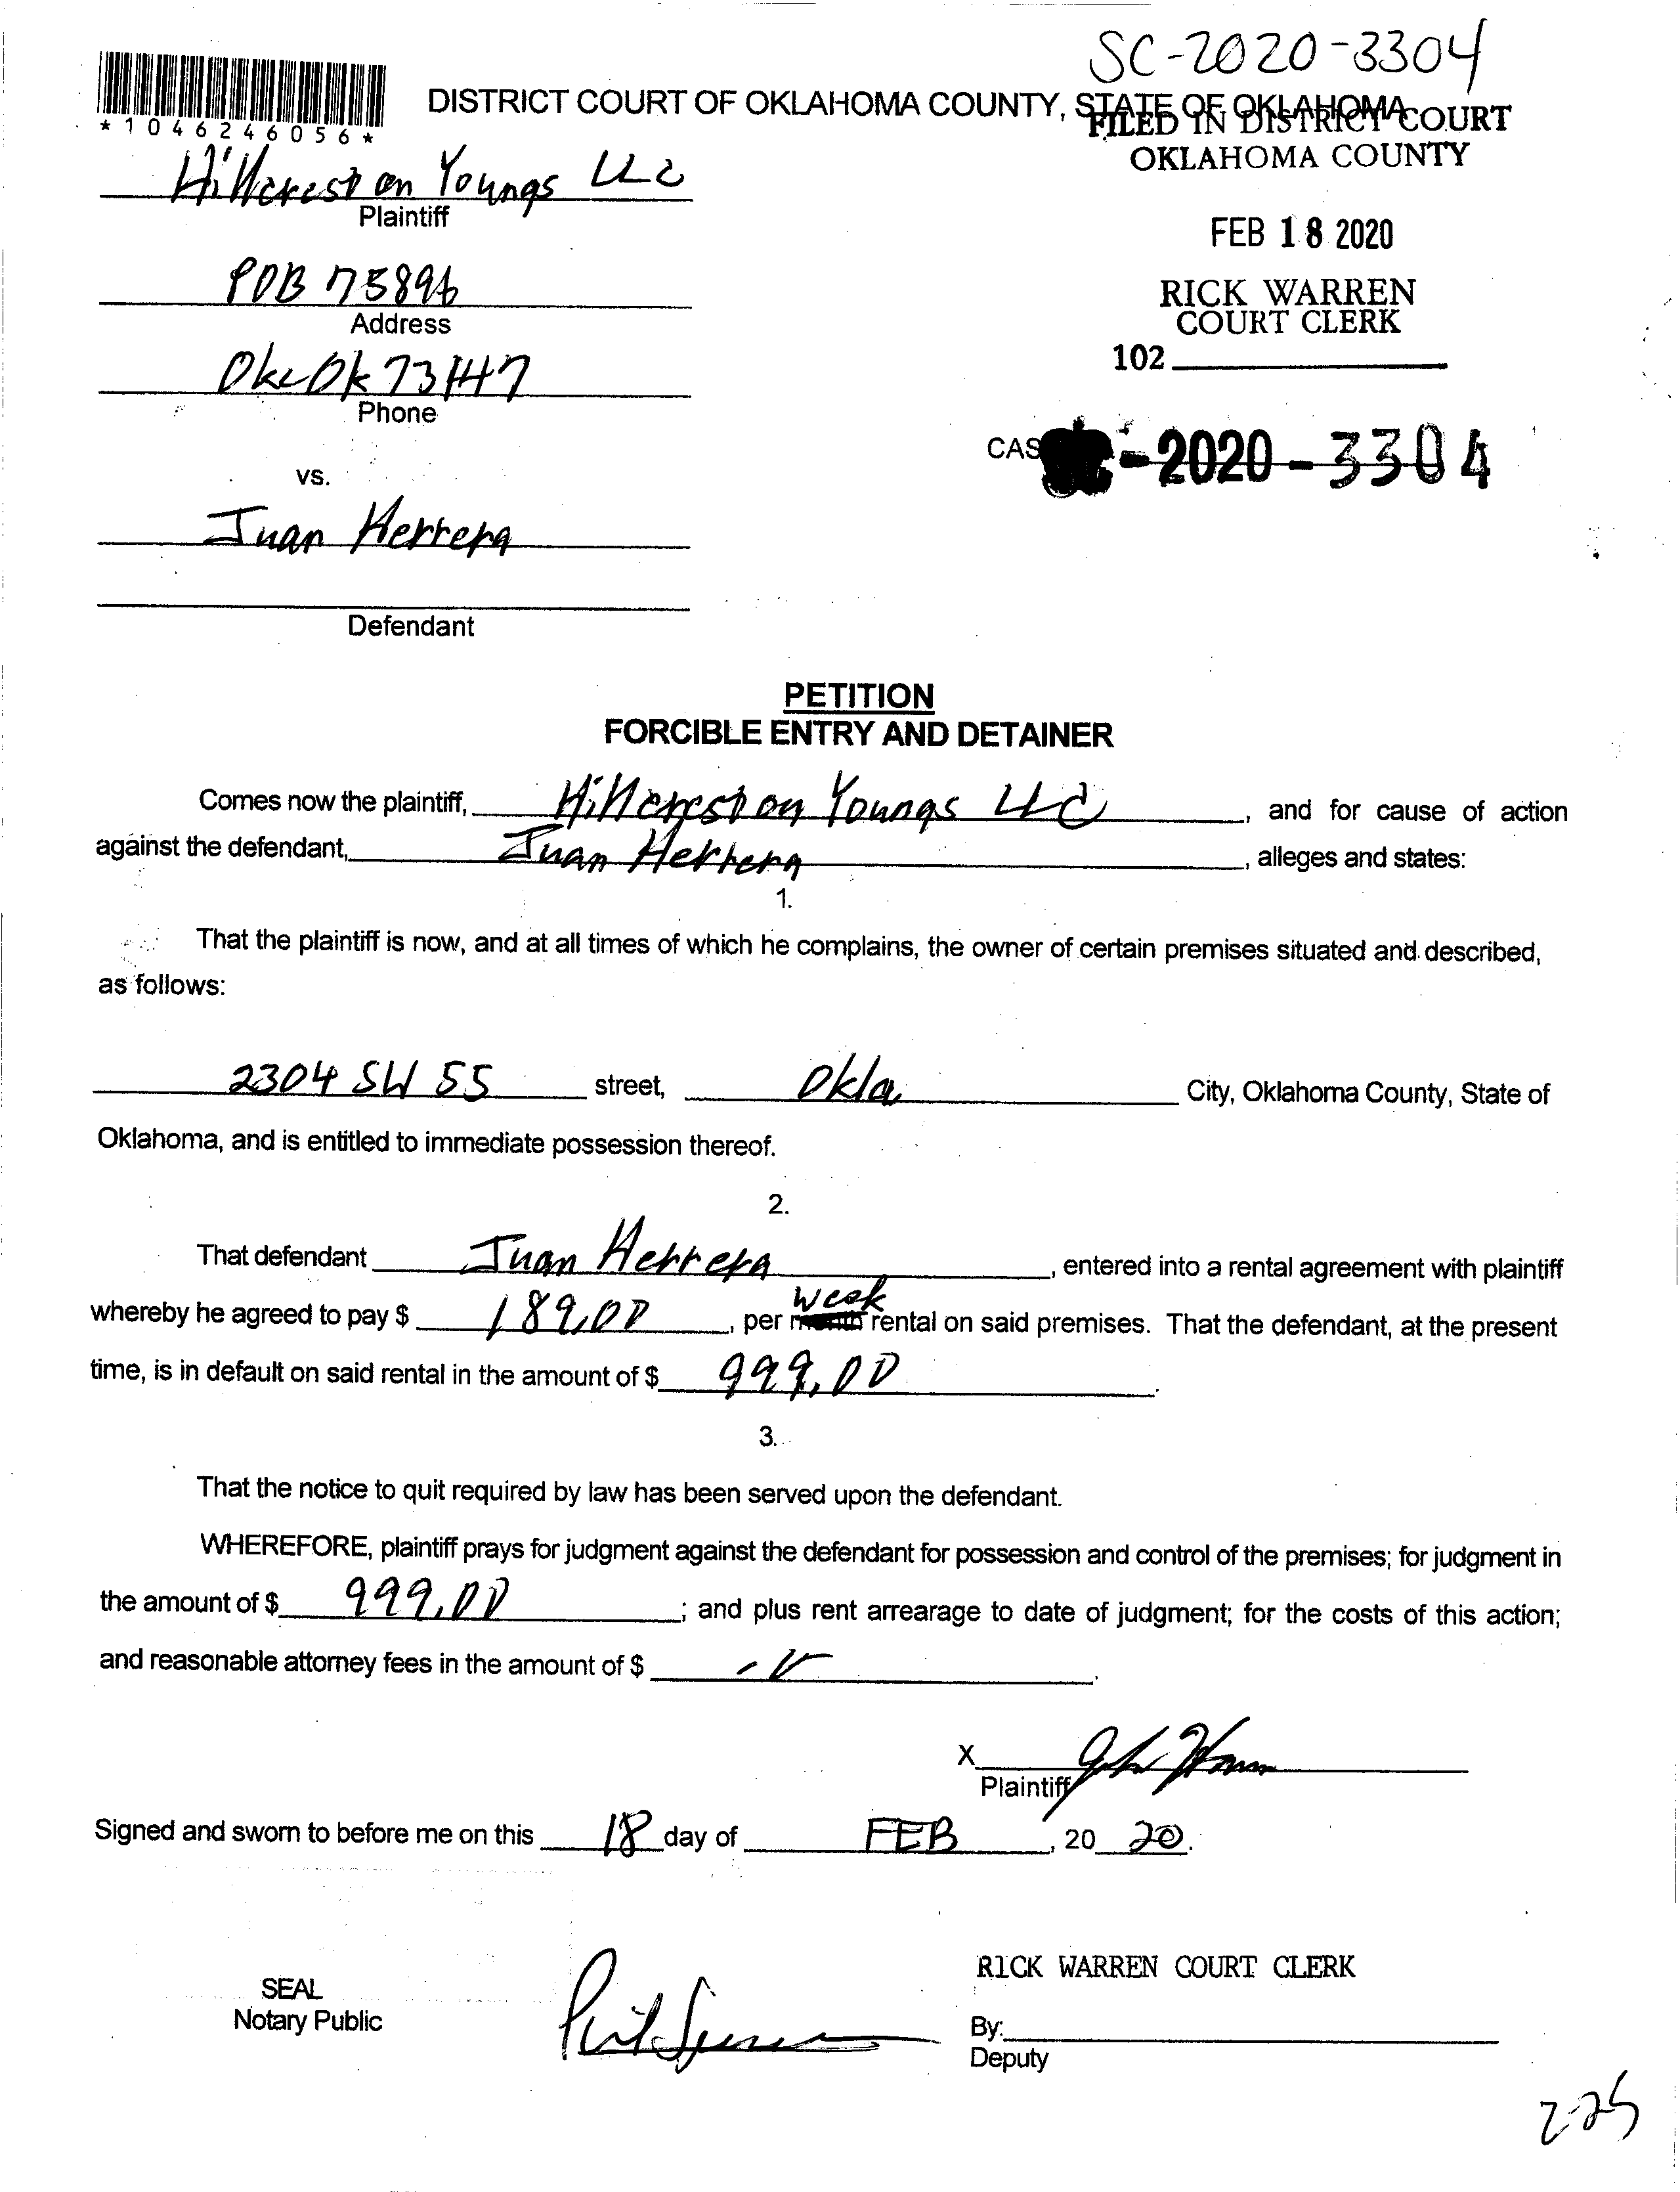 SC-2020-3304
*1046246056*
DISTRICT COURT OF OKLAHOMA COUNTY, STATE OF OKLAHOMA
FILED IN DISTRICT COURT
OKLAHOMA COUNTY
Hillcrest on Youngs LLC
Plaintiff
FEB 18 2020
POB 75896
Address
RICK WARREN
COURT CLERK
OKC OK 73147
Phone
102
CAS
SC-2020-3304
vs.
Juan Herrera
Defendant
PETITION
FORCIBLE ENTRY AND DETAINER
Comes now the plaintiff, Hillcrest on Youngs LLC, and for cause of action
against the defendant, Juan Herrera, alleges and states:
1.
That the plaintiff is now, and at all times of which he complains, the owner of certain premises situated and described,
as follows:
2304 SW 55 street, Okla City, Oklahoma County, State of
Oklahoma, and is entitled to immediate possession thereof.
2.
That defendant Juan Herrera, entered into a rental agreement with plaintiff
whereby he agreed to pay $ 189.00, per month week rental on said premises. That the defendant, at the present
time, is in default on said rental in the amount of $ 999.00.
3.
That the notice to quit required by law has been served upon the defendant.
WHEREFORE, plaintiff prays for judgment against the defendant for possession and control of the premises; for judgment in
the amount of $ 999.00; and plus rent arrearage to date of judgment; for the costs of this action;
and reasonable attorney fees in the amount of $
X
Plaintiff
Signed and sworn to before me on this 18 day of FEB, 20 20.
RICK WARREN COURT CLERK
SEAL
Notary Public
By:
Deputy
225